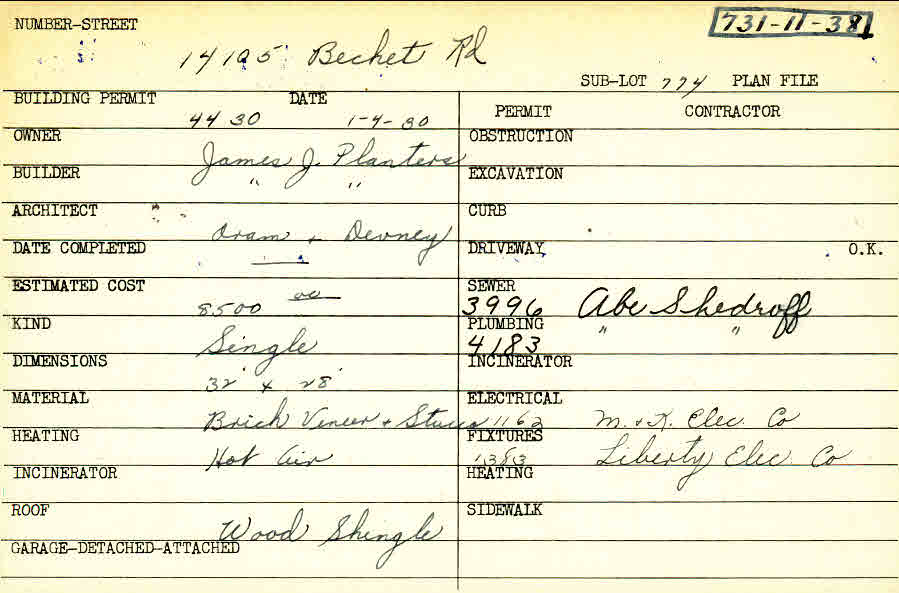 NUMBER-STREET 731-11-38
14105 Becket Rd
SUB-LOT 774 PLAN FILE
BUILDING PERMIT DATE
4430 1-4-30
PERMIT CONTRACTOR
OWNER
James J. Planters
OBSTRUCTION
BUILDER
" "
EXCAVATION
ARCHITECT
Oram + Devney
CURB
DATE COMPLETED
DRIVEWAY O.K.
ESTIMATED COST
8500 00
SEWER
3996 Abe Shedroff
KIND
Single
PLUMBING
4183 " "
DIMENSIONS
32' x 28'
INCINERATOR
MATERIAL
Brick Veneer + Stucco
ELECTRICAL
1162 M. & K. Elec. Co
HEATING
Hot Air
FIXTURES
1383 Liberty Elec Co
INCINERATOR
HEATING
ROOF
Wood Shingle
SIDEWALK
GARAGE-DETACHED-ATTACHED